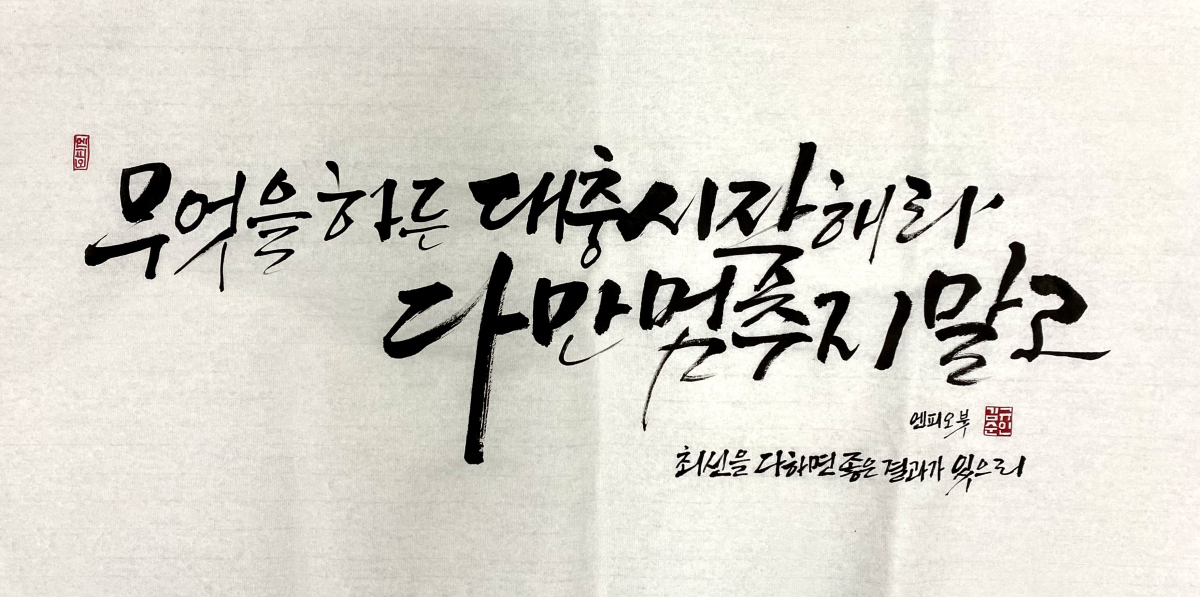 엔피오
무엇을 하든 대충 시작해라
다만 멈추지 말고
엔피오북
최선을 다하면 좋은 결과가 있으리